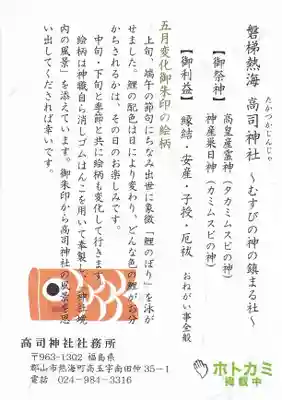 たかつかじんじゃ
磐梯熱海 高司神社 〜むすびの神の鎮まる社〜
【御祭神】
高皇産霊神（タカミムスビの神）
神産巣日神（カミムスビの神）
【御利益】
縁結・安産・子授・厄祓 おねがい事全般
五月変化御朱印の絵柄
上旬、端午の節句にちなみ出世に象徴「鯉のぼり」を泳が
せました。鯉の配色は日により変わり、どんな色の鯉がお分
かちされるかは、その日のお楽しみです。
中旬・下旬と季節と共に絵柄も変化して行きます。
絵柄は神職自ら消しゴムはんこを用いて奉製し、「神社境
内の風景」を添えています。御朱印から高司神社の風景を思
い出してくだされば幸いです。
高司神社社務所
〒963-1302 福島県
郡山市熱海町高玉字南田仲35−1
電話 024-984-3316
ホトカミ
掲載中